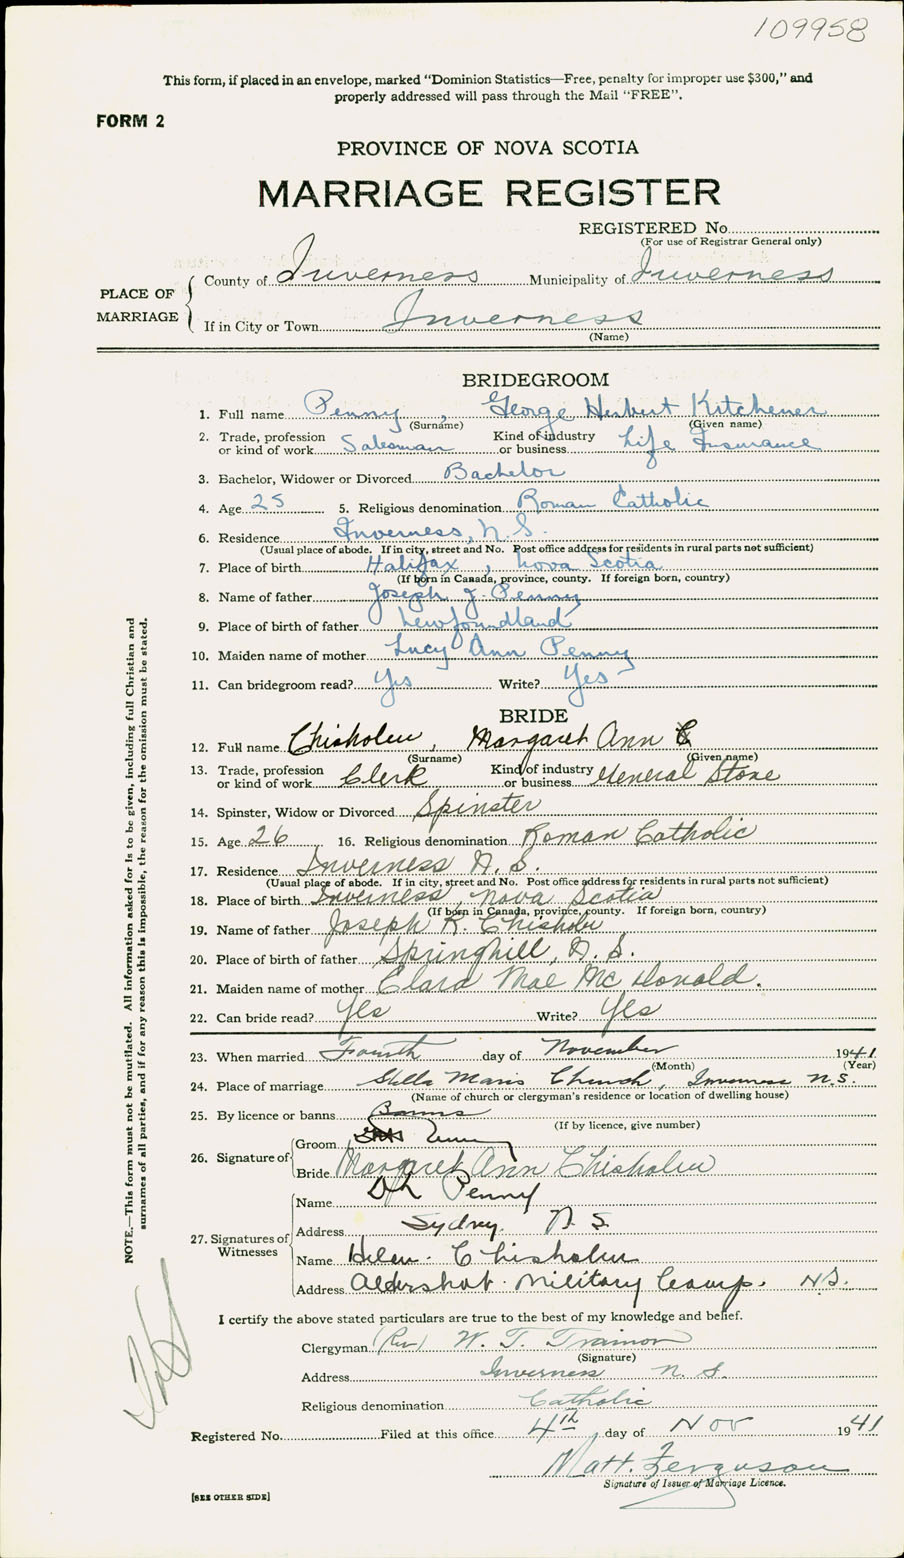 109958
This form, if placed in an envelope, marked "Dominion Statistics—Free, penalty for improper use $300," and
properly addressed will pass through the Mail "FREE".
FORM 2
PROVINCE OF NOVA SCOTIA
MARRIAGE REGISTER
REGISTERED No.
(For use of Registrar General only)
PLACE OF MARRIAGE
County of Inverness Municipality of Inverness
If in City or Town Inverness
(Name)
BRIDEGROOM
1. Full name Penny, George Herbert Kitchener
(Surname) (Given name)
2. Trade, profession or kind of work Salesman Kind of industry or business Life Insurance
3. Bachelor, Widower or Divorced Bachelor
4. Age 25 5. Religious denomination Roman Catholic
6. Residence Inverness, N.S.
(Usual place of abode. If in city, street and No. Post office address for residents in rural parts not sufficient)
7. Place of birth Halifax, Nova Scotia
(If born in Canada, province, county. If foreign born, country)
8. Name of father Joseph J. Penny
9. Place of birth of father Newfoundland
10. Maiden name of mother Lucy Ann Penny
11. Can bridegroom read? Yes Write? Yes
BRIDE
12. Full name Chisholm, Margaret Ann C
(Surname) (Given name)
13. Trade, profession or kind of work Clerk Kind of industry or business General Store
14. Spinster, Widow or Divorced Spinster
15. Age 26 16. Religious denomination Roman Catholic
17. Residence Inverness N.S.
(Usual place of abode. If in city, street and No. Post office address for residents in rural parts not sufficient)
18. Place of birth Inverness, Nova Scotia
(If born in Canada, province, county. If foreign born, country)
19. Name of father Joseph R. Chisholm
20. Place of birth of father Springhill, N.S.
21. Maiden name of mother Clara Mae McDonald.
22. Can bride read? Yes Write? Yes
23. When married Fourth day of November 1941
(Month) (Year)
24. Place of marriage Stella Maris Church, Inverness N.S.
(Name of church or clergyman's residence or location of dwelling house)
25. By licence or banns Banns
(If by licence, give number)
26. Signature of
Groom Penny
Bride Margaret Ann Chisholm
27. Signatures of Witnesses
Name Penny
Address Sydney. N.S.
Name Helen Chisholm
Address Aldershot Military Camp. N.S.
I certify the above stated particulars are true to the best of my knowledge and belief.
Clergyman (Rev) W. T. Trainor
(Signature)
Address Inverness N.S.
Religious denomination Catholic
Registered No. Filed at this office 4th day of Nov 1941
Matt. Ferguson
Signature of Issuer of Marriage Licence.
[SEE OTHER SIDE]
NOTE.—This form must not be mutilated. All information asked for is to be given, including full Christian and
surnames of all parties, and if for any reason this is impossible, the reason for the omission must be stated.